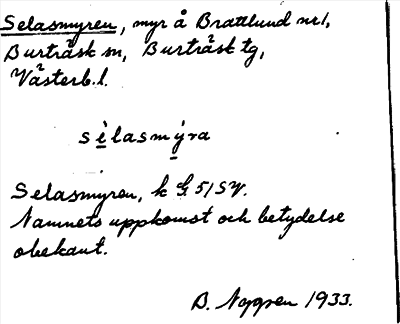 Selasmyren, myr å Brattlund nr 1,
Burträsk sn, Burträsk tg,
Västerb. l.
sèlasmýra
Selasmyren, k G 51 SV.
Namnets uppkomst och betydelse
obekant.
B. Nygren 1933.